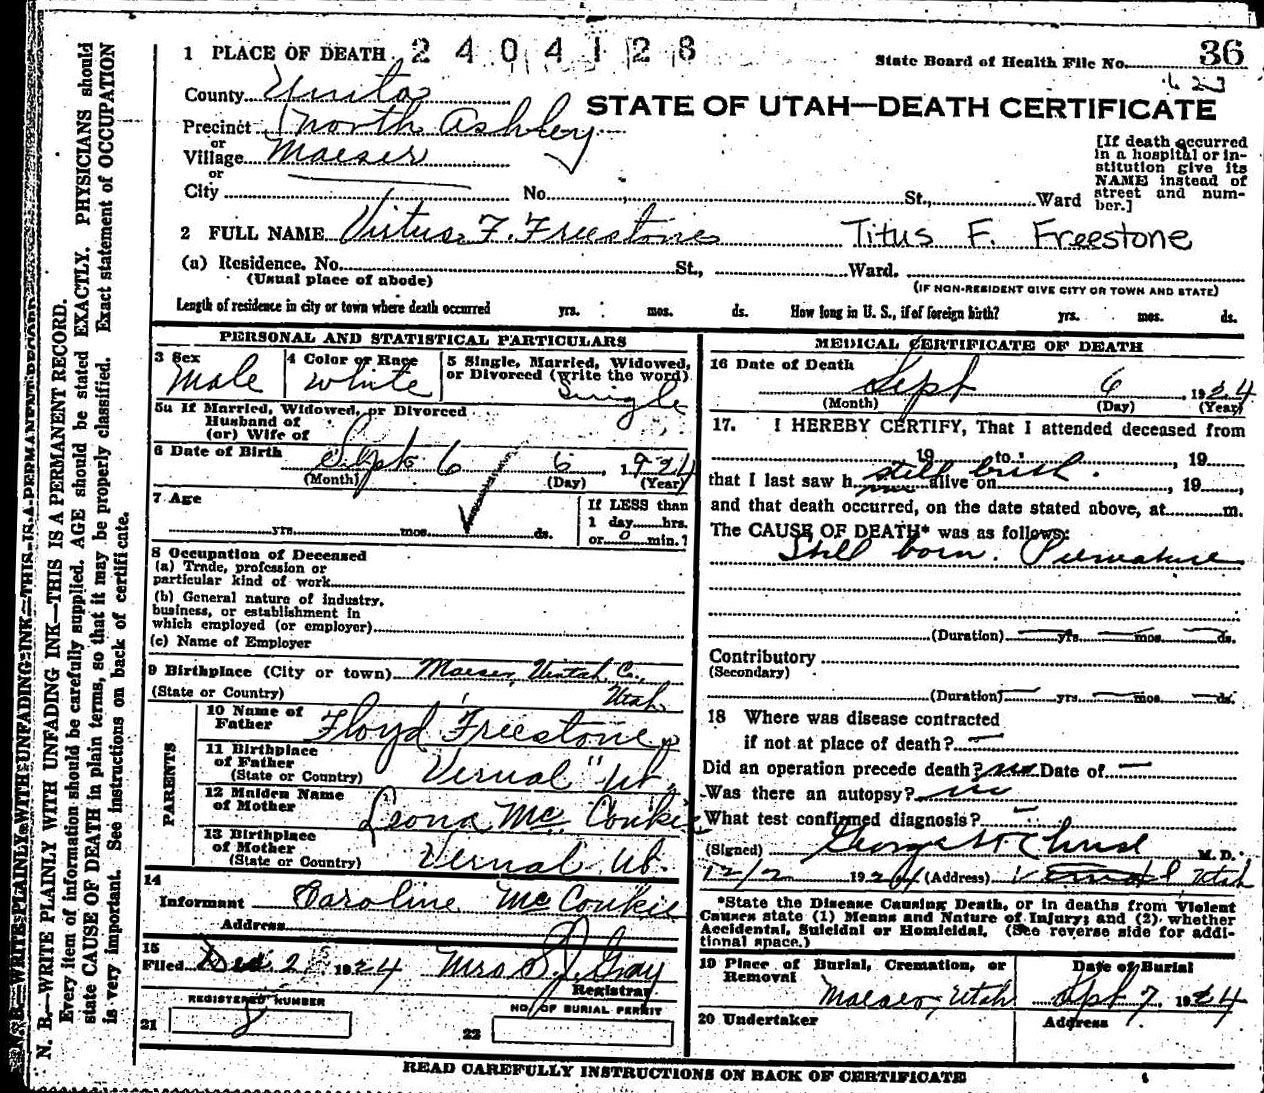 1 PLACE OF DEATH 2404128
State Board of Health File No. 36
623
County Uinta
STATE OF UTAH—DEATH CERTIFICATE
Precinct North Ashley
or
Village Maeser
or
City No. St., Ward
[If death occurred
in a hospital or in-
stitution give its
NAME instead of
street and num-
ber.]
2 FULL NAME Virtus F. Freestone Titus F. Freestone
(a) Residence. No. St., Ward.
(Usual place of abode)
(IF NON-RESIDENT GIVE CITY OR TOWN AND STATE)
Length of residence in city or town where death occurred yrs. mos. ds. How long in U. S., if of foreign birth? yrs. mos. ds.
PERSONAL AND STATISTICAL PARTICULARS
3 Sex
Male
4 Color or Race
White
5 Single, Married, Widowed,
or Divorced (write the word)
Single
5a If Married, Widowed, or Divorced
Husband of
(or) Wife of
6 Date of Birth Sept 6 6, 1924
(Month) (Day) (Year)
7 Age
yrs. mos. ds.
If LESS than
1 day hrs.
or 0 min.?
8 Occupation of Deceased
(a) Trade, profession or
particular kind of work
(b) General nature of industry,
business, or establishment in
which employed (or employer)
(c) Name of Employer
9 Birthplace (City or town) Maeser, Uintah Co.,
(State or Country) Utah
PARENTS
10 Name of
Father Floyd Freestone
11 Birthplace
of Father
(State or Country) Vernal Ut.
12 Maiden Name
of Mother Leona McConkie
13 Birthplace
of Mother
(State or Country) Vernal Ut.
14
Informant Caroline McConkie
Address
15
Filed Dec. 2 1924 Mrs S. J. Gray
Registrar
REGISTERED NUMBER
21 8
NO. OF BURIAL PERMIT
22
MEDICAL CERTIFICATE OF DEATH
16 Date of Death
Sept 6, 1924
(Month) (Day) (Year)
17. I HEREBY CERTIFY, That I attended deceased from
19 to , 19
that I last saw h alive on still birth , 19 ,
and that death occurred, on the date stated above, at m.
The CAUSE OF DEATH* was as follows:
Still born. Premature
(Duration) yrs. mos. ds.
Contributory
(Secondary)
(Duration) yrs. mos. ds.
18 Where was disease contracted
if not at place of death?
Did an operation precede death? no Date of
Was there an autopsy? no
What test confirmed diagnosis?
(Signed) George H Christ M. D.
12/2 1924 (Address) Vernal Utah
*State the Disease Causing Death, or in deaths from Violent
Causes state (1) Means and Nature of Injury; and (2) whether
Accidental, Suicidal or Homicidal. (See reverse side for addi-
tional space.)
19 Place of Burial, Cremation, or
Removal
Maeser, Utah
Date of Burial
Sept 7. 1924
20 Undertaker
Address
READ CAREFULLY INSTRUCTIONS ON BACK OF CERTIFICATE
N. B.—WRITE PLAINLY WITH UNFADING INK—THIS IS A PERMANENT RECORD.
N. B.—WRITE PLAINLY WITH UNFADING INK—THIS IS A PERMANENT RECORD.
Every item of information should be carefully supplied. AGE should be stated EXACTLY. PHYSICIANS should
state CAUSE OF DEATH in plain terms, so that it may be properly classified. Exact statement of OCCUPATION
is very important. See instructions on back of certificate.